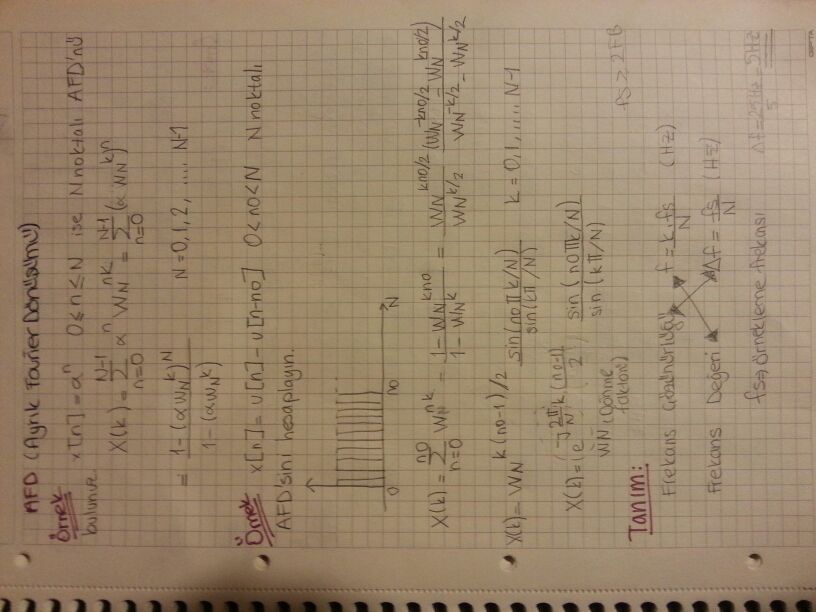 AFD (Ayrık Fourier Dönüşümü)
Örnek x[n] = αⁿ 0 ≤ n ≤ N ise N noktalı AFD'nü
bulunuz.
X(k) = Σ_{n=0}^{N-1} αⁿ W_N^{nk} = Σ_{n=0}^{N-1} (α W_N^k)ⁿ
= (1-(αW_N^k)^N) / (1-(αW_N^k)) N = 0, 1, 2, .... N-1
Örnek x[n] = u[n] - u[n-n0] 0 < n0 < N N noktalı
AFD'sini hesaplayın.
0 n0 N
X(k) = Σ_{n=0}^{n0} W_N^{nk} = (1 - W_N^{kn0}) / (1 - W_N^k) = (W_N^{kn0/2} / W_N^{k/2}) (W_N^{-kn0/2} - W_N^{kn0/2}) / (W_N^{-k/2} - W_N^{k/2})
X(k) = W_N^{k(n0-1)/2} sin(n0πk/N) / sin(kπ/N) k = 0, 1, .... N-1
X(k) = (e^{-j(2π/N)k((n0-1)/2)}) sin(n0πk/N) / sin(kπ/N)
W_N (Dönme
faktörü)
fs ≥ 2FB
Tanım:
Frekans Çözünürlüğü f = k.fs/N (Hz)
Frekans Değeri Δf = fs/N (Hz)
fs ⇒ örnekleme frekansı Δf = 25Hz/5 = 5Hz